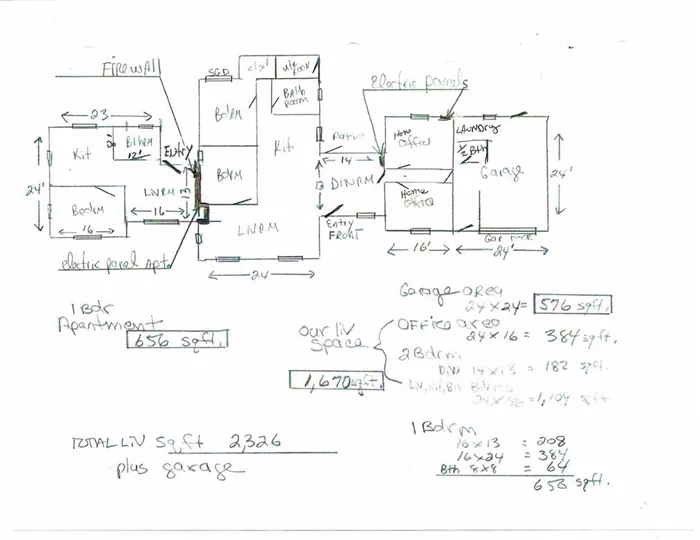 FIREWALL
SGD
closet
utly room
Electric panels
Bath room
BdRM
23
Kit
Bthrm
12'
Entry
24'
LIVRM
13
Bedrm
16
16
Electric panel Apt
BdRM
Kit
LIVRM
24
Patio
14
13
DINRM
Entry
FRONT
Home
Office
Home
Office
LAUNDRY
1/2 Bth
Garage
24'
16'
24'
1 Bdr
Apartment
656 sqft.
Garage area
24 x 24 = 576 sqft.
our liv
space
1,670 sqft.
OFFICE area
24 x 16 = 384 sqft.
2 Bdrm
DIN 14 x 13 = 182 sqft.
24 x 46 = 1,104 sqft
TOTAL LIV sq,ft 2,326
plus garage
1 Bdrm
16 x 13 = 208
16 x 24 = 384
Bth 8 x 8 = 64
656 sqft.